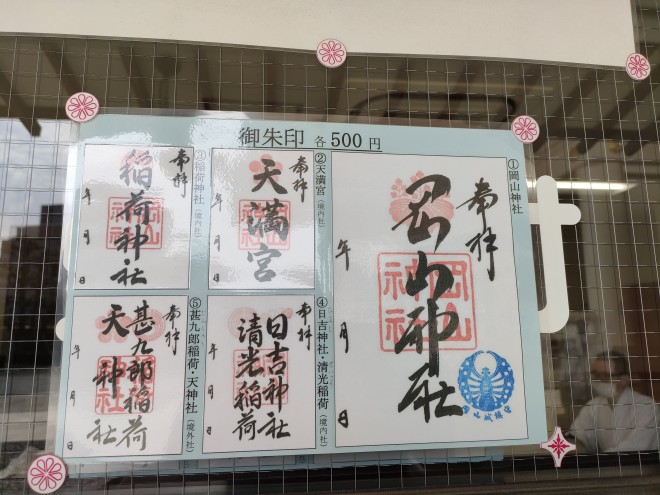 御朱印 各500円
①岡山神社
奉拝
岡山神社
岡山神社
年 月 日
②天満宮(境内社)
奉拝
天満宮
③稲荷神社(境内社)
奉拝
稲荷神社
年 月 日
④日吉神社・清光稲荷(境内社)
奉拝
日吉神社
清光稲荷
⑤甚九郎稲荷・天神社(境外社)
奉拝
甚九郎稲荷
天神社
年 月 日